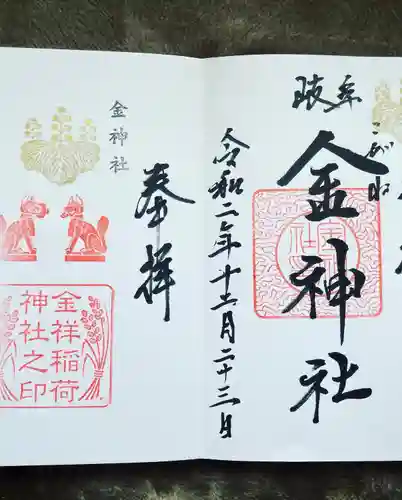 岐阜
こがね
金神社
令和二年十二月二十三日
奉拝
金神社
金祥稲荷
神社之印